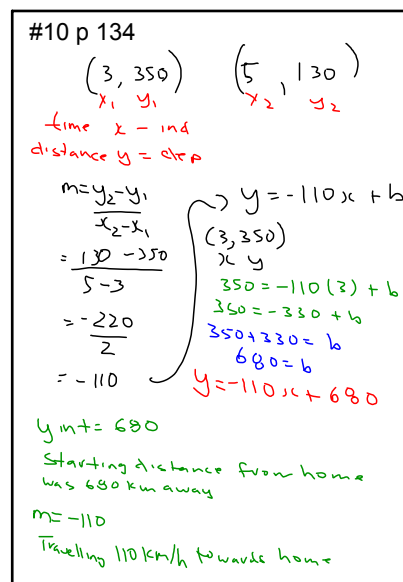 #10 p 134
(3, 350) (5, 130)
x₁ y₁ x₂ y₂
time x - ind
distance y = dep
m = y₂-y₁
x₂-x₁
= 130 - 350
5-3
= -220
2
= -110
y = -110x + b
(3,350)
x y
350 = -110(3) + b
350 = -330 + b
350+330 = b
680 = b
y = -110x + 680
y int = 680
Starting distance from home
was 680 km away
m = -110
Travelling 110 km/h towards home